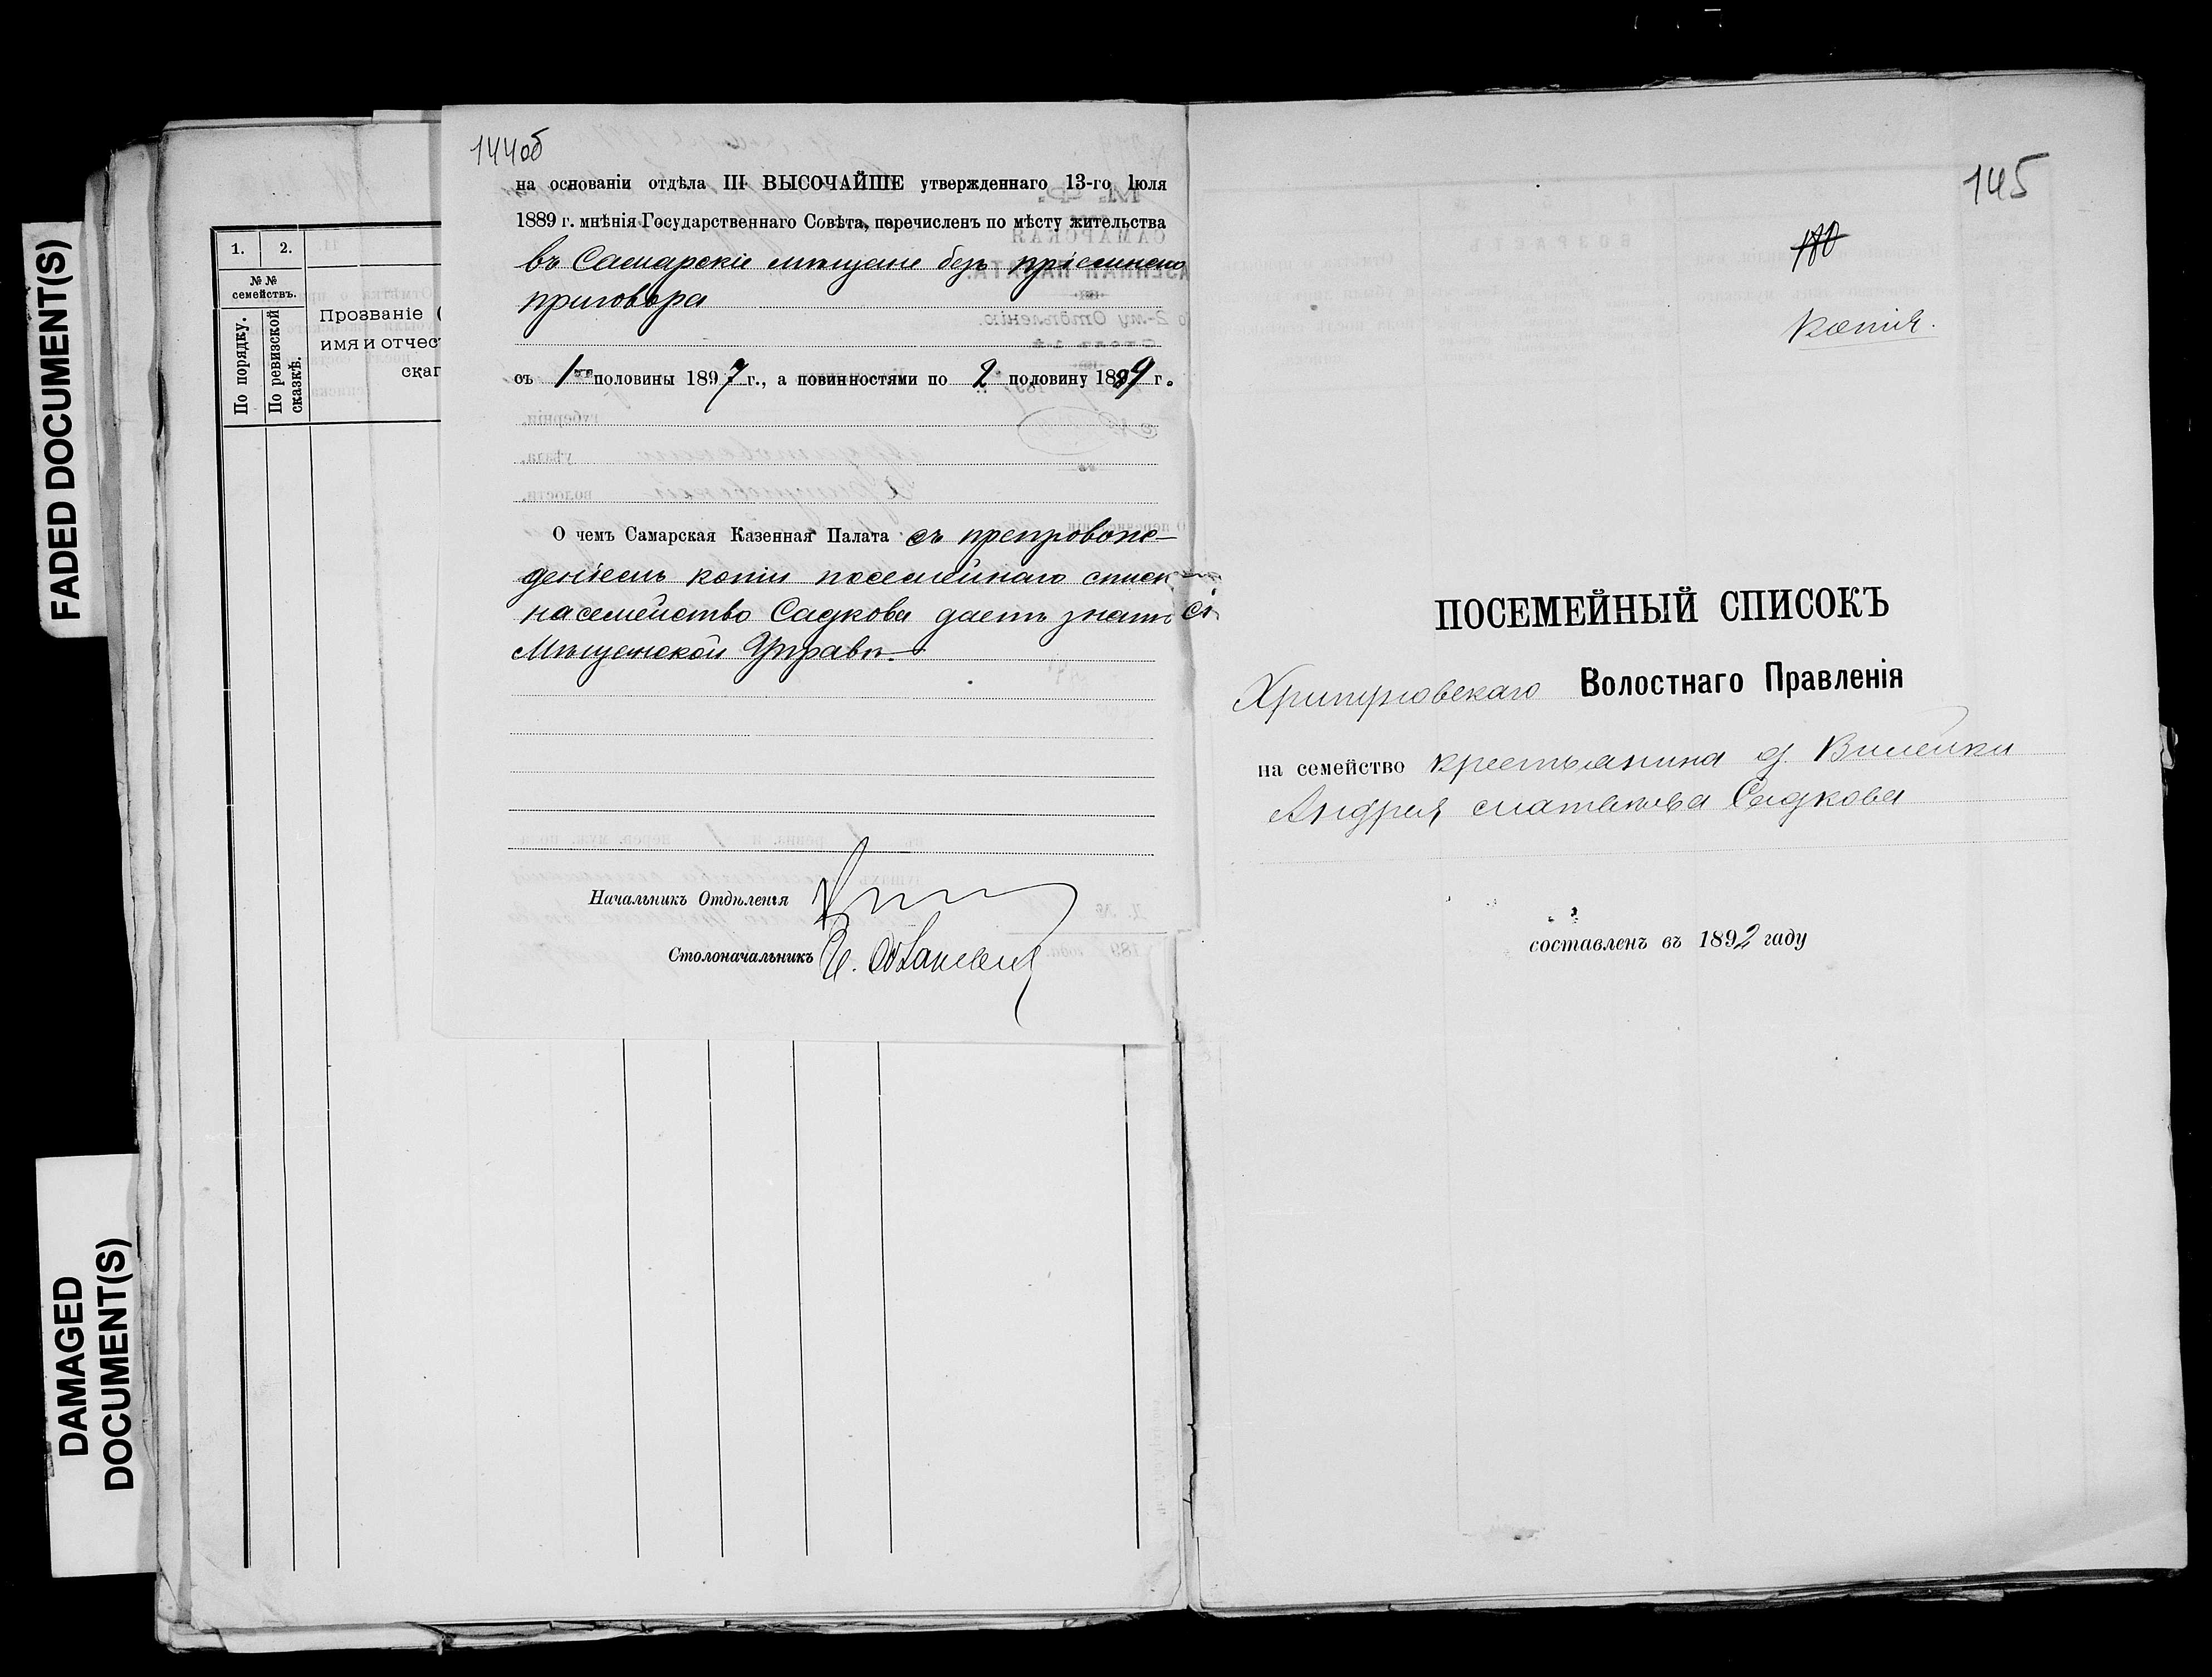 FADED DOCUMENT(S)
DAMAGED
DOCUMENT(S)
1. 2.
№№
семействъ.
По порядку.
По ревизской
сказкѣ.
Прозваніе (
имя и отчес
скаг
144об
на основаніи отдѣла III ВЫСОЧАЙШЕ утвержденнаго 13-го Іюля
1889 г. мнѣнія Государственнаго Совѣта, перечисленъ по мѣсту жительства
въ Самарскіе мѣщане безъ пріемнаго
приговора
съ 1ой половины 1897 г., а повинностями по 2 половину 1899 г.
О чемъ Самарская Казенная Палата съ препровож-
деніемъ копіи посемейнаго списка
на семейство Садкова даетъ знать
Мѣщанской Управѣ.
Начальникъ Отдѣленія
Столоначальникъ
145
180
Копія.
ПОСЕМЕЙНЫЙ СПИСОКЪ
Хрипуновскаго Волостнаго Правленія
на семейство крестьянина д. Вилейки
Андрея Матвѣева Садкова
составленъ въ 1892 гаду